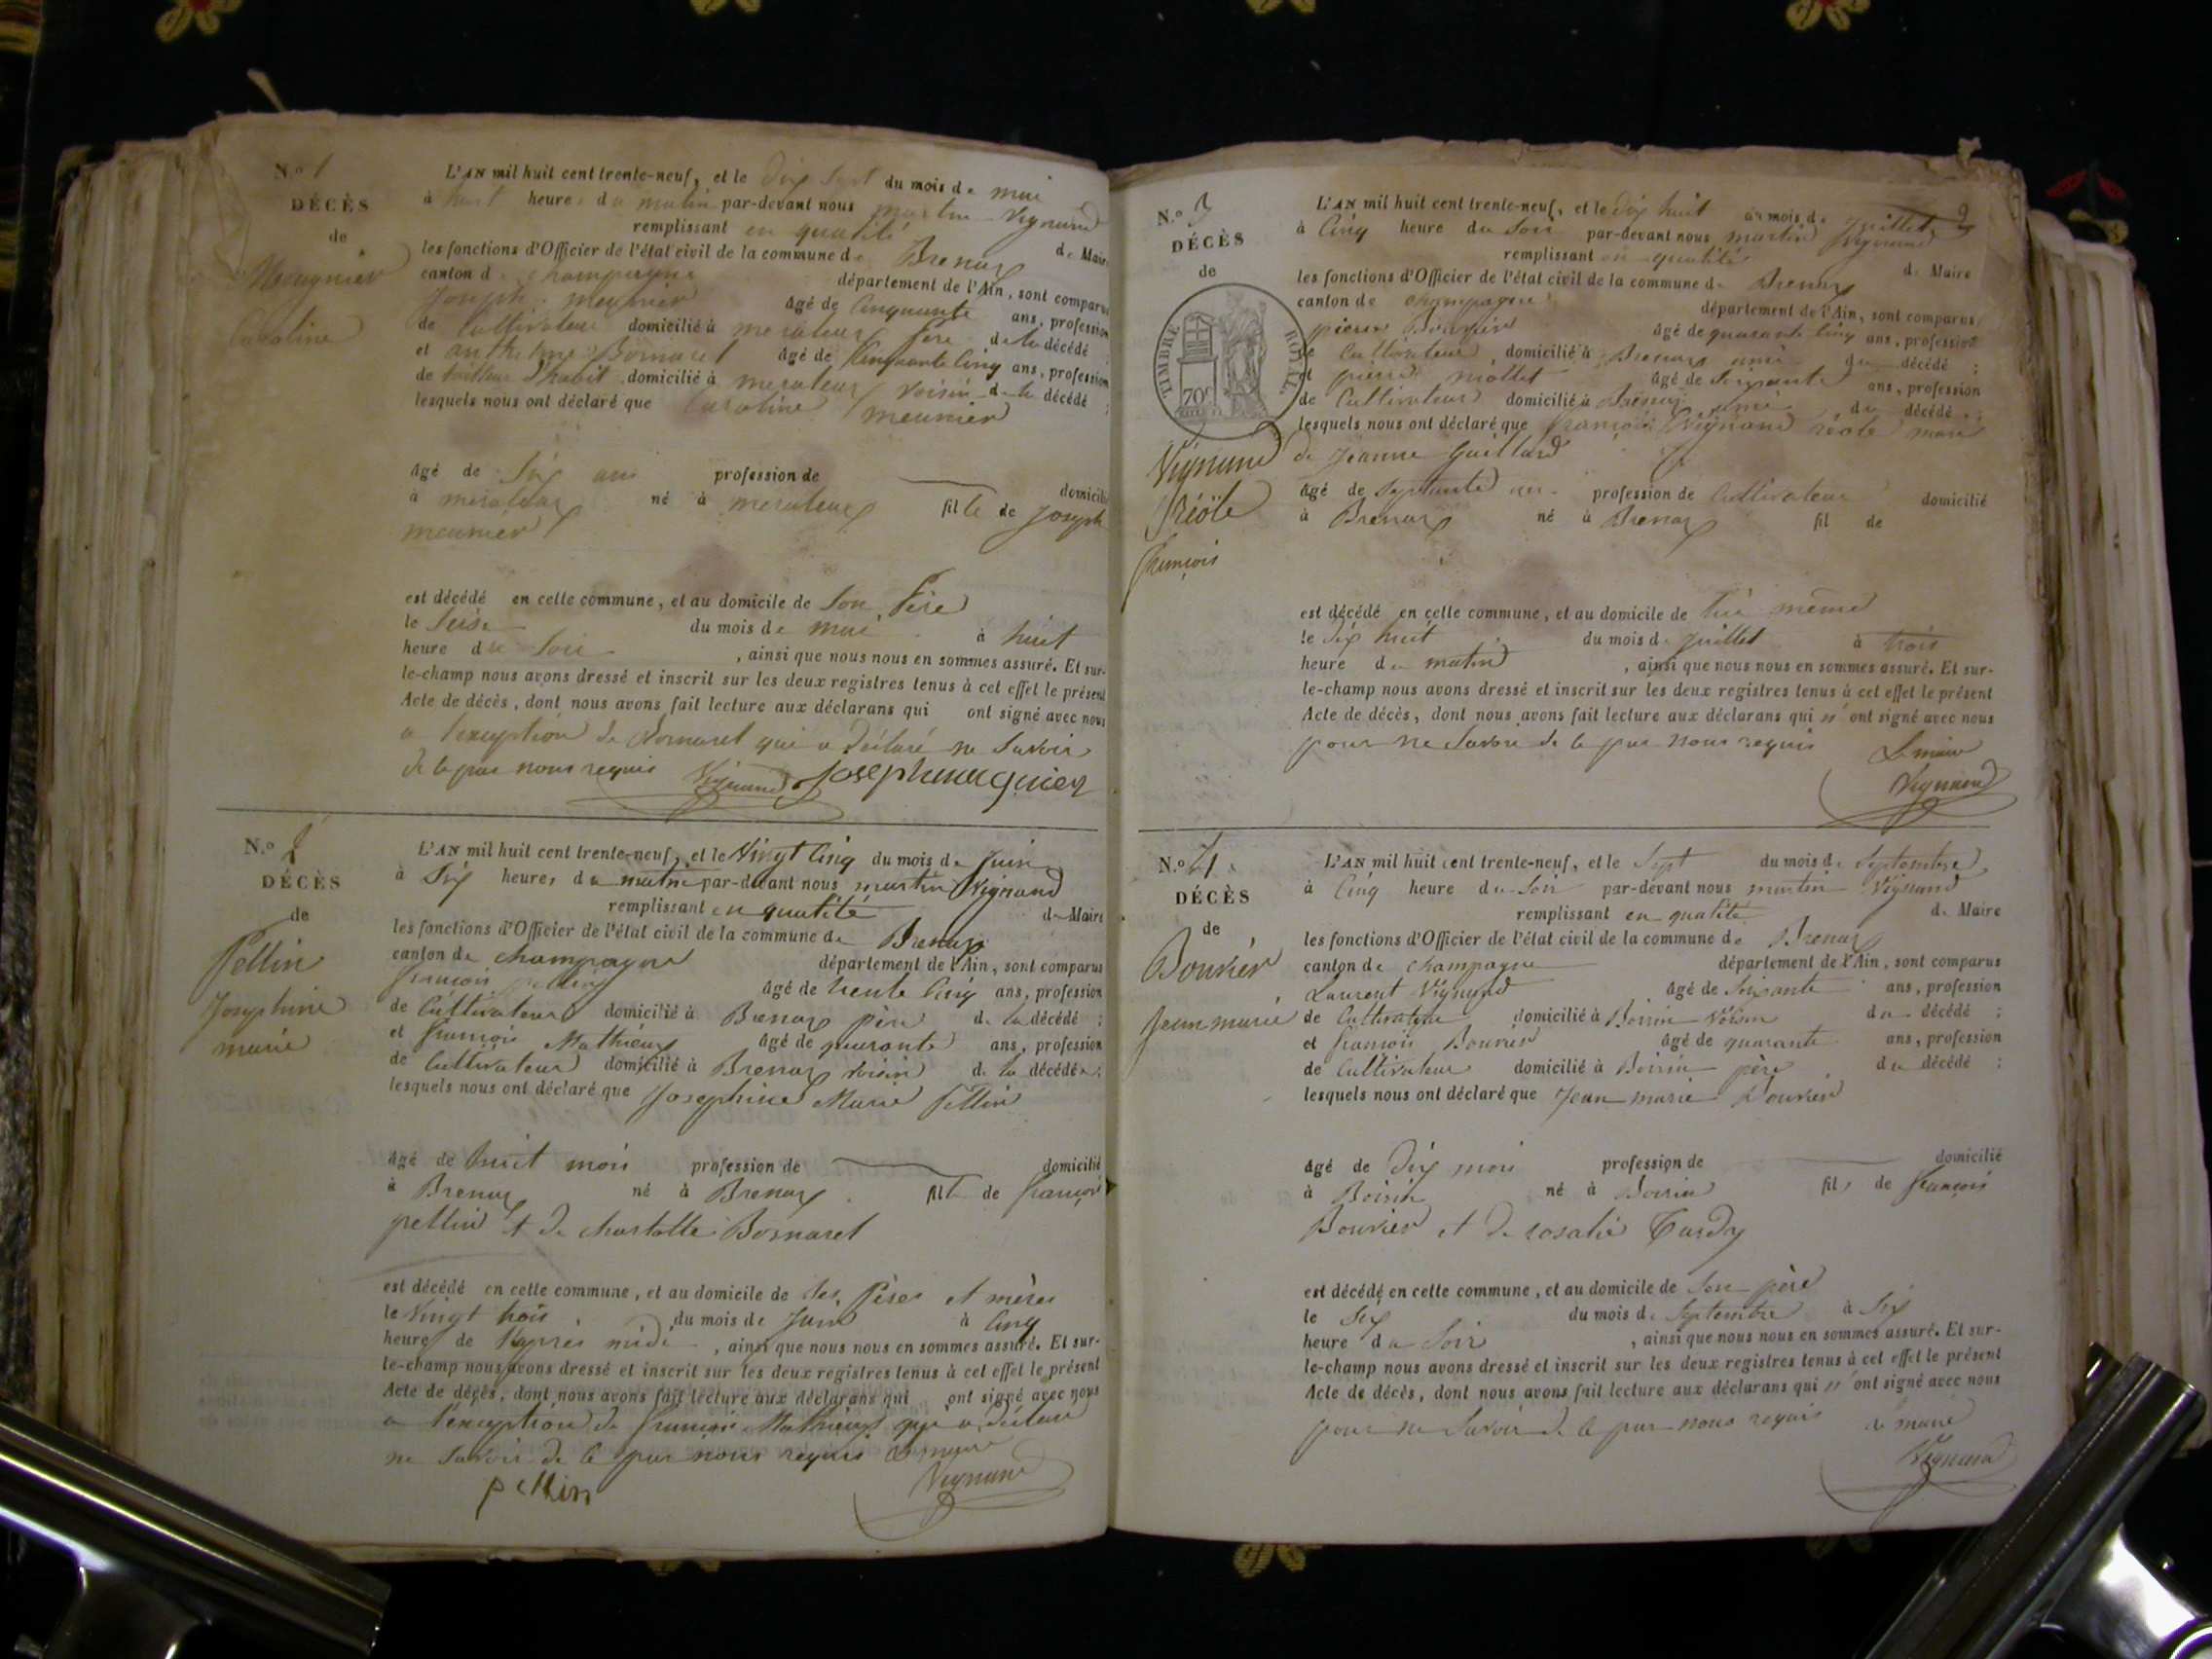 N.o 1
DÉCÈS
de
Meugnier
Caroline
L'AN mil huit cent trente-neuf, et le dix sept du mois de mai
à huit heures du matin par-devant nous martin Vignand
remplissant en qualité de Maire
les fonctions d'Officier de l'état civil de la commune de Brenaz
canton de champagne département de l'Ain, sont comparus
Joseph meunier âgé de Cinquante ans, profession
de Cultivateur domicilié à meraleaz père de la décédé
et anthelme Bornarel âgé de Cinquante Cinq ans, profession
de tailleur d'habit domicilié à meraleaz voisin de la décédé ;
lesquels nous ont déclaré que Caroline meunier
âgé de Six ans profession de domicilié
à meraleaz né à meraleaz fille de Joseph
meunier
est décédé en cette commune, et au domicile de Son Père
le Seise du mois de mai à huit
heure du Soir , ainsi que nous nous en sommes assuré. Et sur-
le-champ nous avons dressé et inscrit sur les deux registres tenus à cet effet le présent
Acte de décès, dont nous avons fait lecture aux déclarans qui ont signé avec nous
a l'exception de Bornarel qui a déclaré ne Savoir
de le par nous requis Vignand Joseph meugnier
N.o 2
DÉCÈS
de
Pellin
Josephine
marie
L'AN mil huit cent trente-neuf, et le Vingt Cinq du mois de Juin
à Six heures du matin par-devant nous martin Vignand
remplissant en qualité de Maire
les fonctions d'Officier de l'état civil de la commune de Brenaz
canton de champagne département de l'Ain, sont comparus
françois pellin âgé de trente Cinq ans, profession
de Cultivateur domicilié à Brenaz père de la décédé ;
et françois Mathieux âgé de quarante ans, profession
de Cultivateur domicilié à Brenaz voisin de la décédée ;
lesquels nous ont déclaré que Josephine Marie Pellin
âgé de huit mois profession de domicilié
à Brenaz né à Brenaz fille de françois
pellin et de charlotte Bornarel
est décédé en cette commune, et au domicile de Ses Pères et mères
le Vingt trois du mois de Juin à Cinq
heure de l'après midi , ainsi que nous nous en sommes assuré. Et sur-
le-champ nous avons dressé et inscrit sur les deux registres tenus à cet effet le présent
Acte de décès, dont nous avons fait lecture aux déclarans qui ont signé avec nous
a l'exception de françois Mathieux qui a déclaré
ne Savoir de le par nous requis Le maire
pellin Vignand
N.o 3
DÉCÈS
de
TIMBRE ROYAL
70c
Vignand
Réole
François
L'AN mil huit cent trente-neuf, et le dix huit du mois de Juillet
à Cinq heure du Soir par-devant nous martin Vignand
remplissant en qualité de Maire
les fonctions d'Officier de l'état civil de la commune de Brenaz
canton de champagne département de l'Ain, sont comparus
pierre Bouvier âgé de quarante Cinq ans, profession
de Cultivateur domicilié à Brenaz ami du décédé ;
et pierre miollet âgé de Soixante ans, profession
de Cultivateur domicilié à Brenaz ami du décédé ;
lesquels nous ont déclaré que françois Vignand réole mari
de Jeanne Gaillard
âgé de Septante ans profession de Cultivateur domicilié
à Brenaz né à Brenaz fil de
est décédé en cette commune, et au domicile de lui même
le dix huit du mois de Juillet à trois
heure du matin , ainsi que nous nous en sommes assuré. Et sur-
le-champ nous avons dressé et inscrit sur les deux registres tenus à cet effet le présent
Acte de décès, dont nous avons fait lecture aux déclarans qui n'ont signé avec nous
pour ne Savoir de le par nous requis Le maire
Vignand
N.o 4
DÉCÈS
de
Bouvier
Jean marie
L'AN mil huit cent trente-neuf, et le Sept du mois de Septembre
à Cinq heure du Soir par-devant nous martin Vignand
remplissant en qualité de Maire
les fonctions d'Officier de l'état civil de la commune de Brenaz
canton de champagne département de l'Ain, sont comparus
Laurent Vignand âgé de Soixante ans, profession
de Cultivateur domicilié à Boirin Voisin du décédé ;
et françois Bouvier âgé de quarante ans, profession
de Cultivateur domicilié à Boirin père du décédé ;
lesquels nous ont déclaré que Jean marie Bouvier
âgé de dix mois profession de domicilié
à Boirin né à Boirin fils de françois
Bouvier et de rosalie Tardy
est décédé en cette commune, et au domicile de Son père
le Six du mois de Septembre à Six
heure du Soir , ainsi que nous nous en sommes assuré. Et sur-
le-champ nous avons dressé et inscrit sur les deux registres tenus à cet effet le présent
Acte de décès, dont nous avons fait lecture aux déclarans qui n'ont signé avec nous
pour ne Savoir de le par nous requis le maire
Vignand